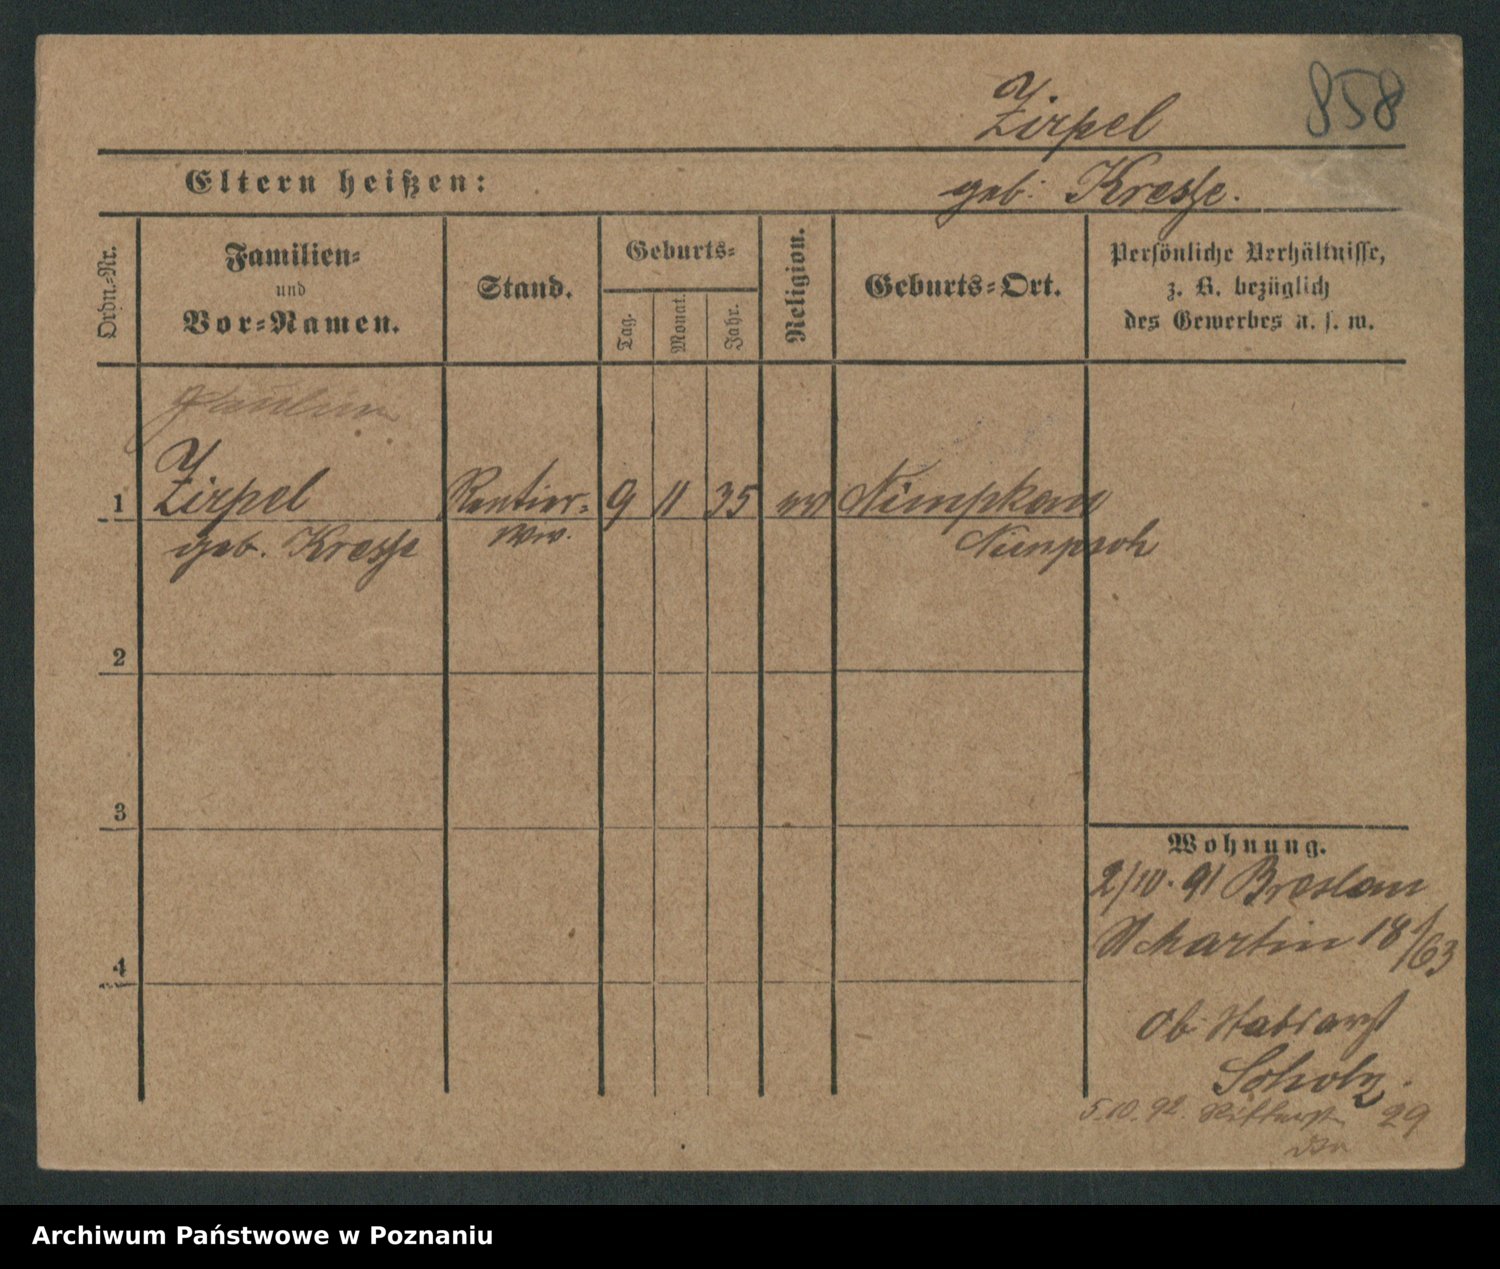 858
Zirpel
Eltern heißen: geb. Kresse.
Ordn.-Nr.
Familien-
und
Vor-Namen.
Stand.
Geburts-
Tag.
Monat.
Jahr.
Religion.
Geburts-Ort.
Persönliche Verhältnisse,
z. B. bezüglich
des Gewerbes u. s. w.
Pauline
1 Zirpel Rentier- 9 11 35 ev Nimpkau
geb. Kresse Ww. Nimpsch
2
3
4
Wohnung.
2/10. 91 Breslau
St Martin 18/63
Ob. Stabsarzt
Scholz.
5.10.92. 29